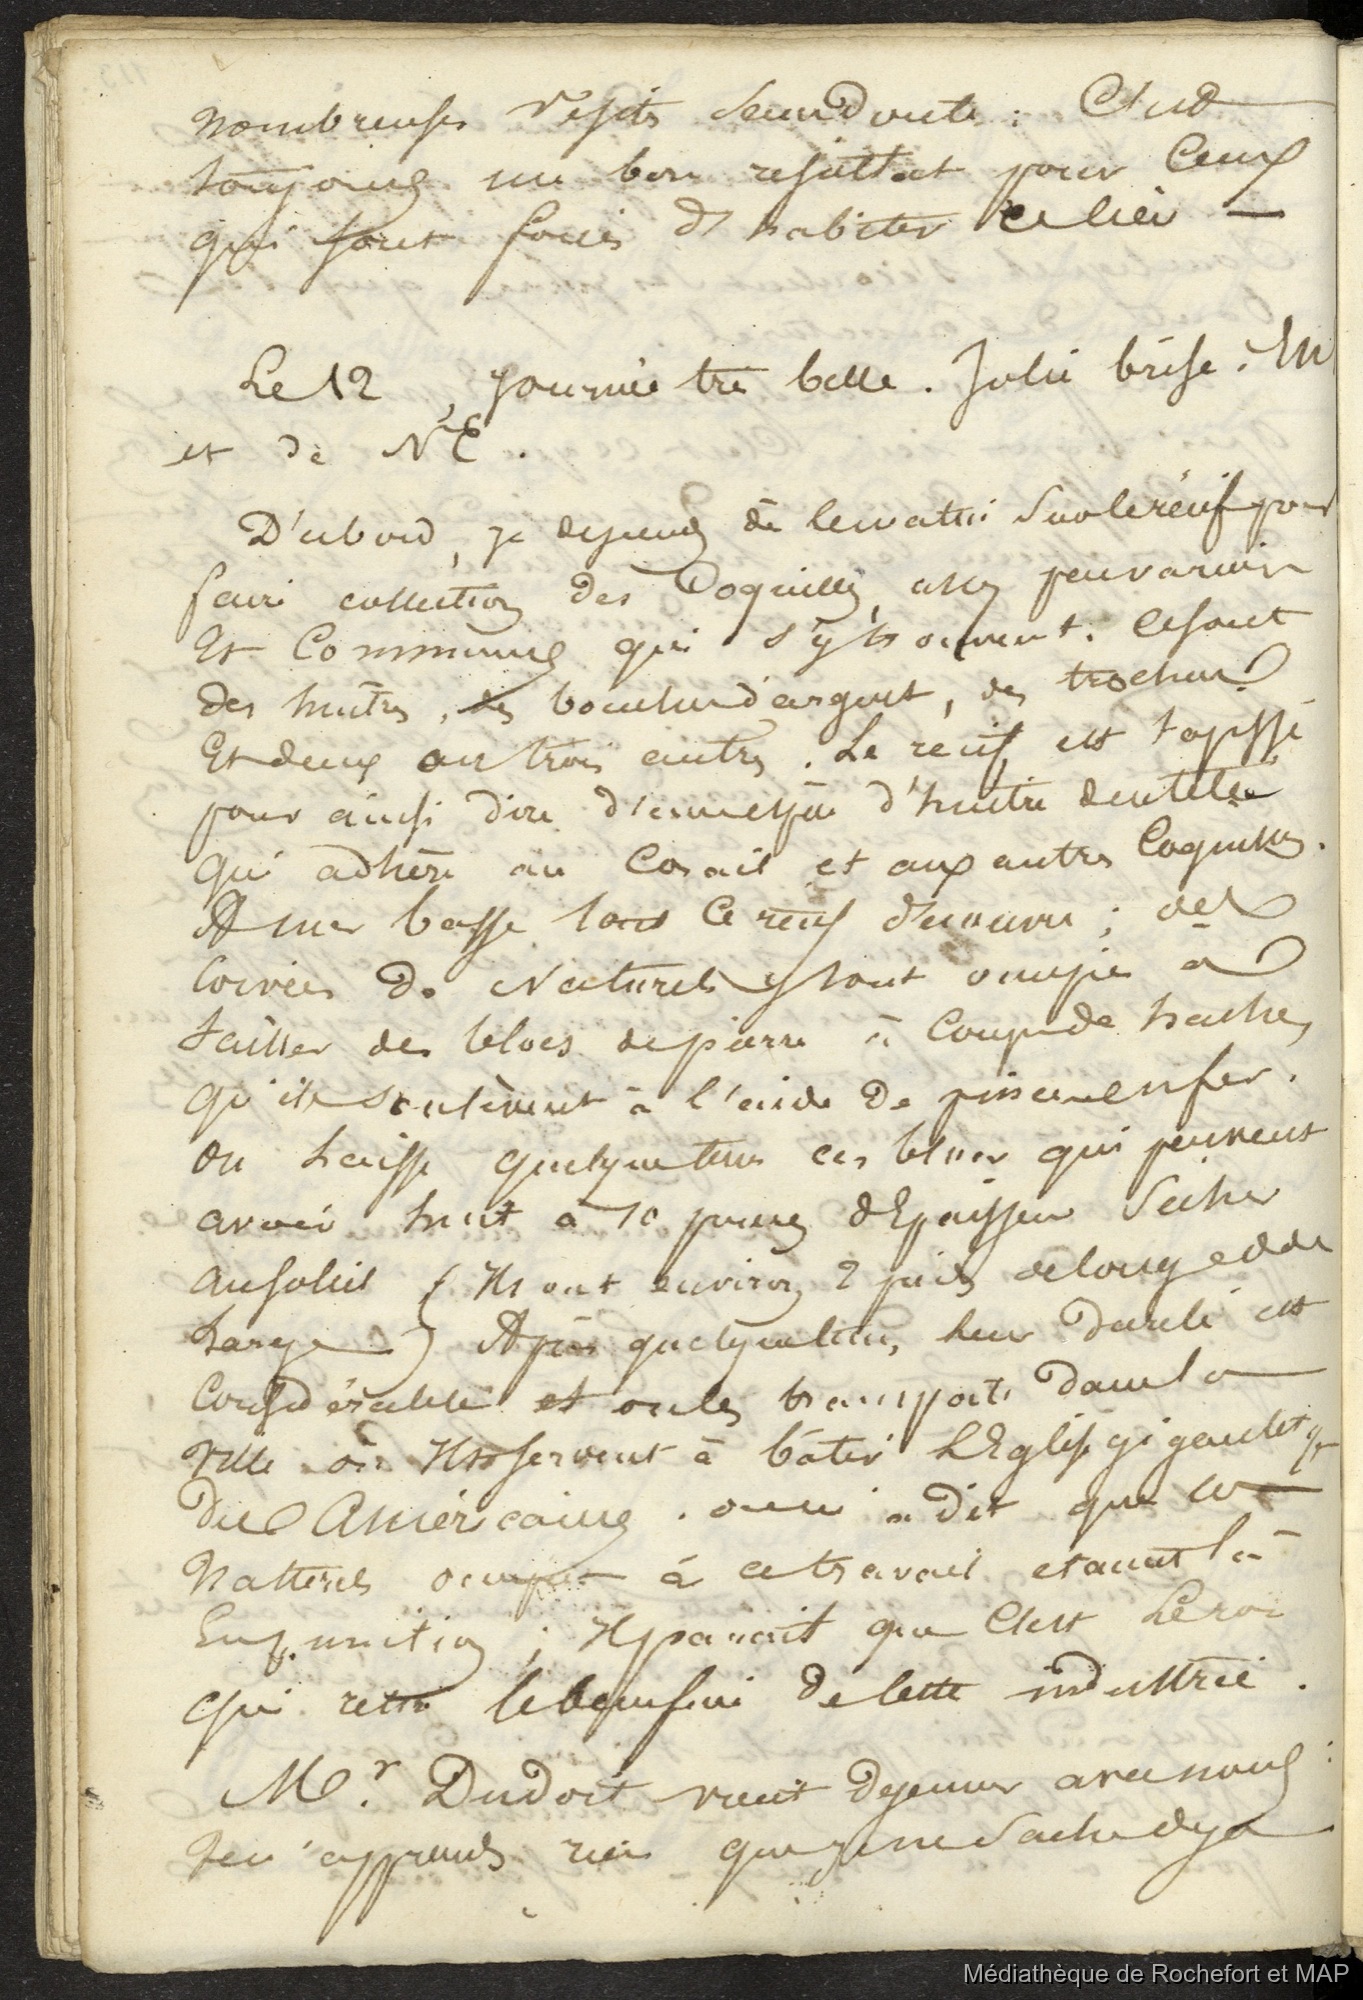 nombreuses visites sans doute : C'est
toujours un bon resultat pour Ceux
qui sont forcés d'habiter ce lieu —
Le 12, journée très belle. Jolie brise. N
et de NE.
D'abord, je dépend de le matin sur le récif pour
faire collection des Coquilles, assez peu variées
Et Communes qui s'y trouvent. Ce sont
des huitres, des bouches d'argent, des trochus
Et deux ou trois autres. Le récif est tapissé
pour ainsi dire d'une espèce d'huitre dentelée
qui adhère au Corail et aux autres Coquilles.
A mer basse tout ce récif découvre ; des
Corvées de Naturels y sont occupés à
tailler des blocs de pierre à Coups de haches,
qu'ils soulèvent à l'aide de pinces en fer.
On laisse quelque tems ces blocs qui peuvent
avoir huit à 10 pouces d'Epaisseur Sécher
au soleil (Ils ont environ 2 pieds de long et de
large) Après quelque tems, leur dureté est
Considérable et on les transporte dans la
ville où Ils servent à bâtir l'Eglise gigantesq
des Américains. on m'a dit que ces
Naturels occupés à ce travail étaient là
En punition ; Il parait que C'est Le roi
qui retire le bénéfice de Cette industrie.
Mr. Dudoit vient déjeuner avec nous :
Je n'apprends rien que je ne Sache déjà
Médiathèque de Rochefort et MAP